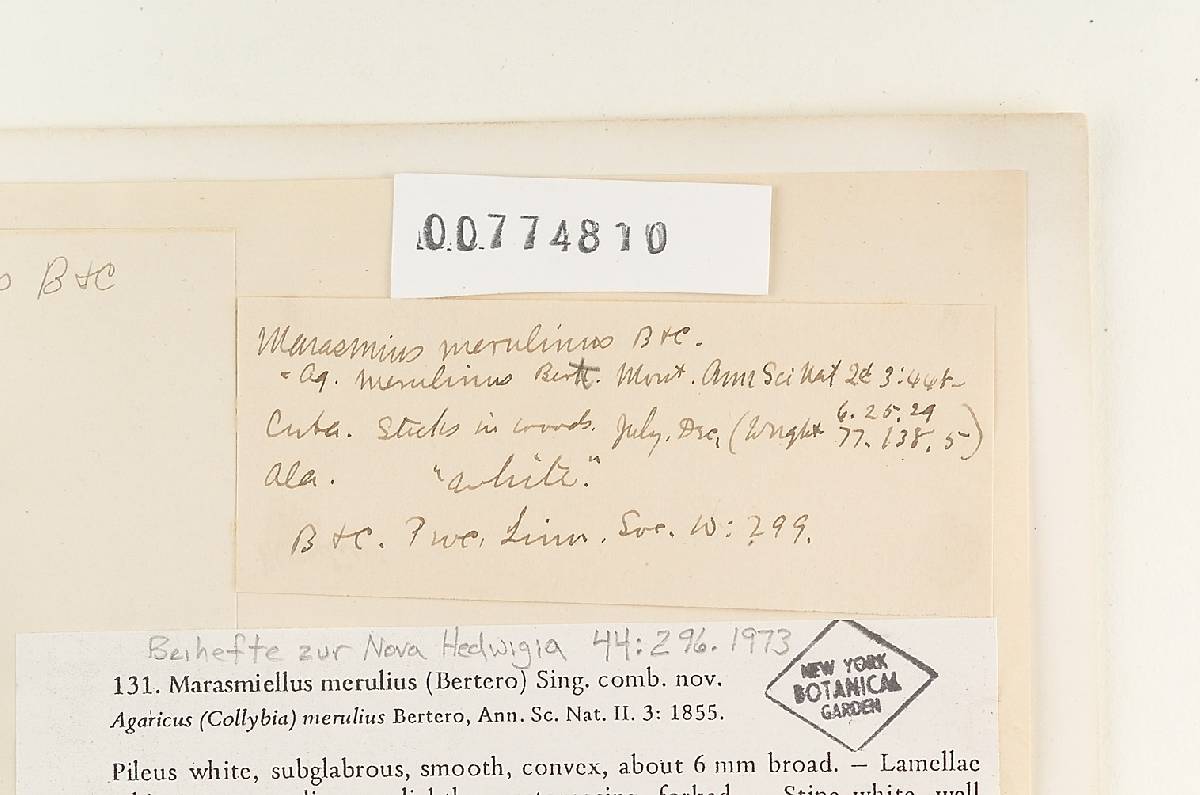 00774810
B+C
Marasmius merulinus B+C.
= Ag. merulinus Bert. Mont. Ann Sci Nat 2d 3:
Cuba. Sticks in woods. July, Dec, (Wright 6. 25. 29
77. 138. 5)
Ala. "white."
B+C. Linn. Soc. 10: 299.
Beihefte zur Nova Hedwigia 44: 296. 1973
NEW YORK
BOTANICAL
GARDEN
131. Marasmiellus merulius (Bertero) Sing. comb. nov.
Agaricus (Collybia) merulius Bertero, Ann. Sc. Nat. II. 3: 1855.
Pileus white, subglabrous, smooth, convex, about 6 mm broad. — Lamellae
forked. Stipe white, wall